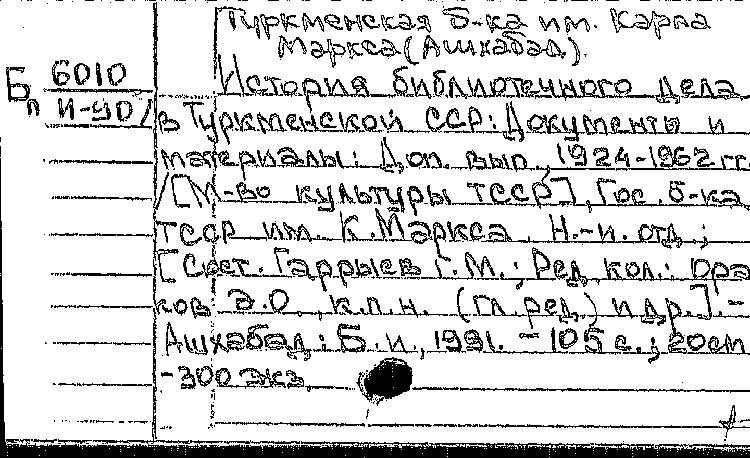 Туркменская б-ка им. Карла
Маркса (Ашхабад).
Бп 6010
И-90/
История библиотечного дела
в Туркменской ССР: Документы и
материалы: Доп. вып., 1924-1962 гг.
/[М-во культуры ТССР], Гос. б-ка
ТССР им. К. Маркса. Н.-и. отд.;
[Сост. Гаррыев Г.М.; Ред. кол.: Ора
ков Э.О., к.п.н. (гл. ред.) и др.]. -
Ашхабад: Б.и., 1991. - 105 с.; 20 см
-300 экз.